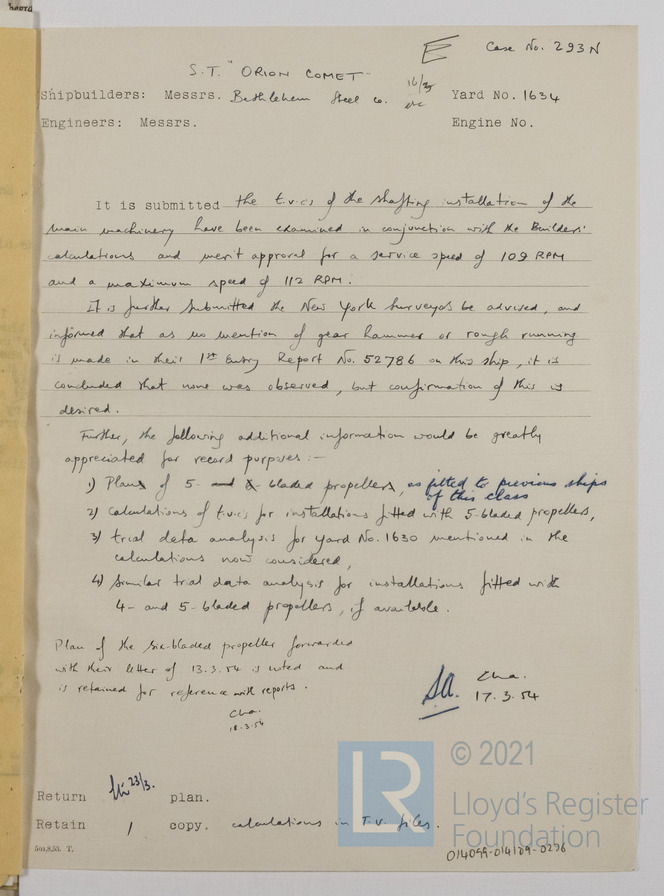 E Case No. 293N
S.T. "ORION COMET"
Shipbuilders: Messrs. Bethlehem Steel Co. Yard No. 1634
Engineers: Messrs. Engine No.
It is submitted the t.v.cs of the shafting installation of the
main machinery have been examined in conjunction with the Builders'
calculations and merit approval for a service speed of 109 RPM
and a maximum speed of 112 RPM.
It is further submitted the New York Surveyors be advised, and
informed that as no mention of gear hammer or rough running
is made in their 1st Entry Report No. 52786 on this ship, it is
concluded that none was observed, but confirmation of this is
desired.
Further, the following additional information would be greatly
appreciated for record purposes:—
1) Plans of 5- and 6- bladed propellers, as fitted to previous ships
of this class
2) Calculations of t.v.cs for installations fitted with 5-bladed propellers,
3) trial data analysis for Yard No. 1630 mentioned in the
calculations now considered,
4) similar trial data analysis for installations fitted with
4- and 5-bladed propellers, if available.
Plan of the six-bladed propeller forwarded
with their letter of 13.3.54 is noted and
is retained for reference with reports.
Cha.
18.3.54
Cha.
17.3.54
Return 23/3. plan.
Retain 1 copy. calculations in T.V. files.
© 2021
LR
Lloyd's Register
Foundation
014099-014109-0236